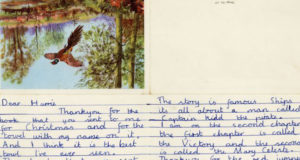 Dear Marrie
Thankyou for the
book that you sent to me
for Christmas and for the
towel with my name on it.
And I think it is the best
towl I've ever seen.
The story is famous Ships
its all about a man called
Captain Kidd the pirate.
I am on the second chapter
the first chapter is called
the Victory and the second
is called the Mary Celeste.
Thankyou for the